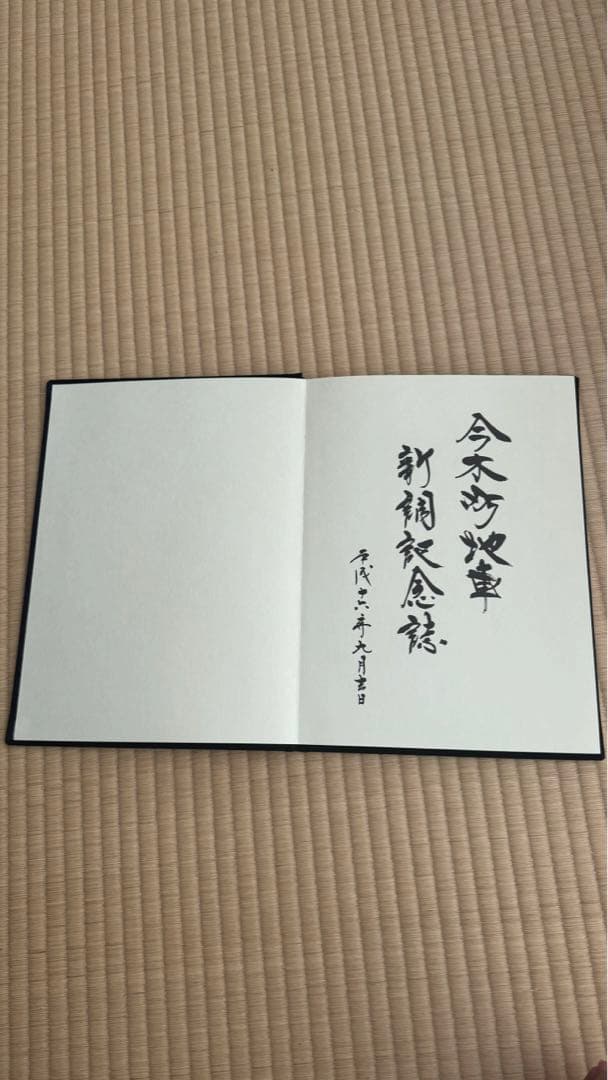 今木町地車
新調記念誌
平成十六年九月吉日